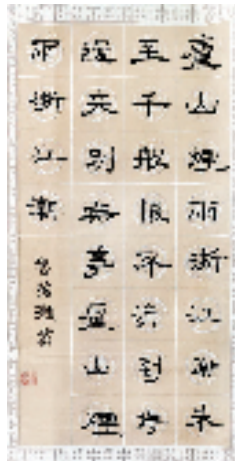 廬山煙雨浙江潮未
至千般恨不消到得
還來別無事廬山煙
雨浙江潮